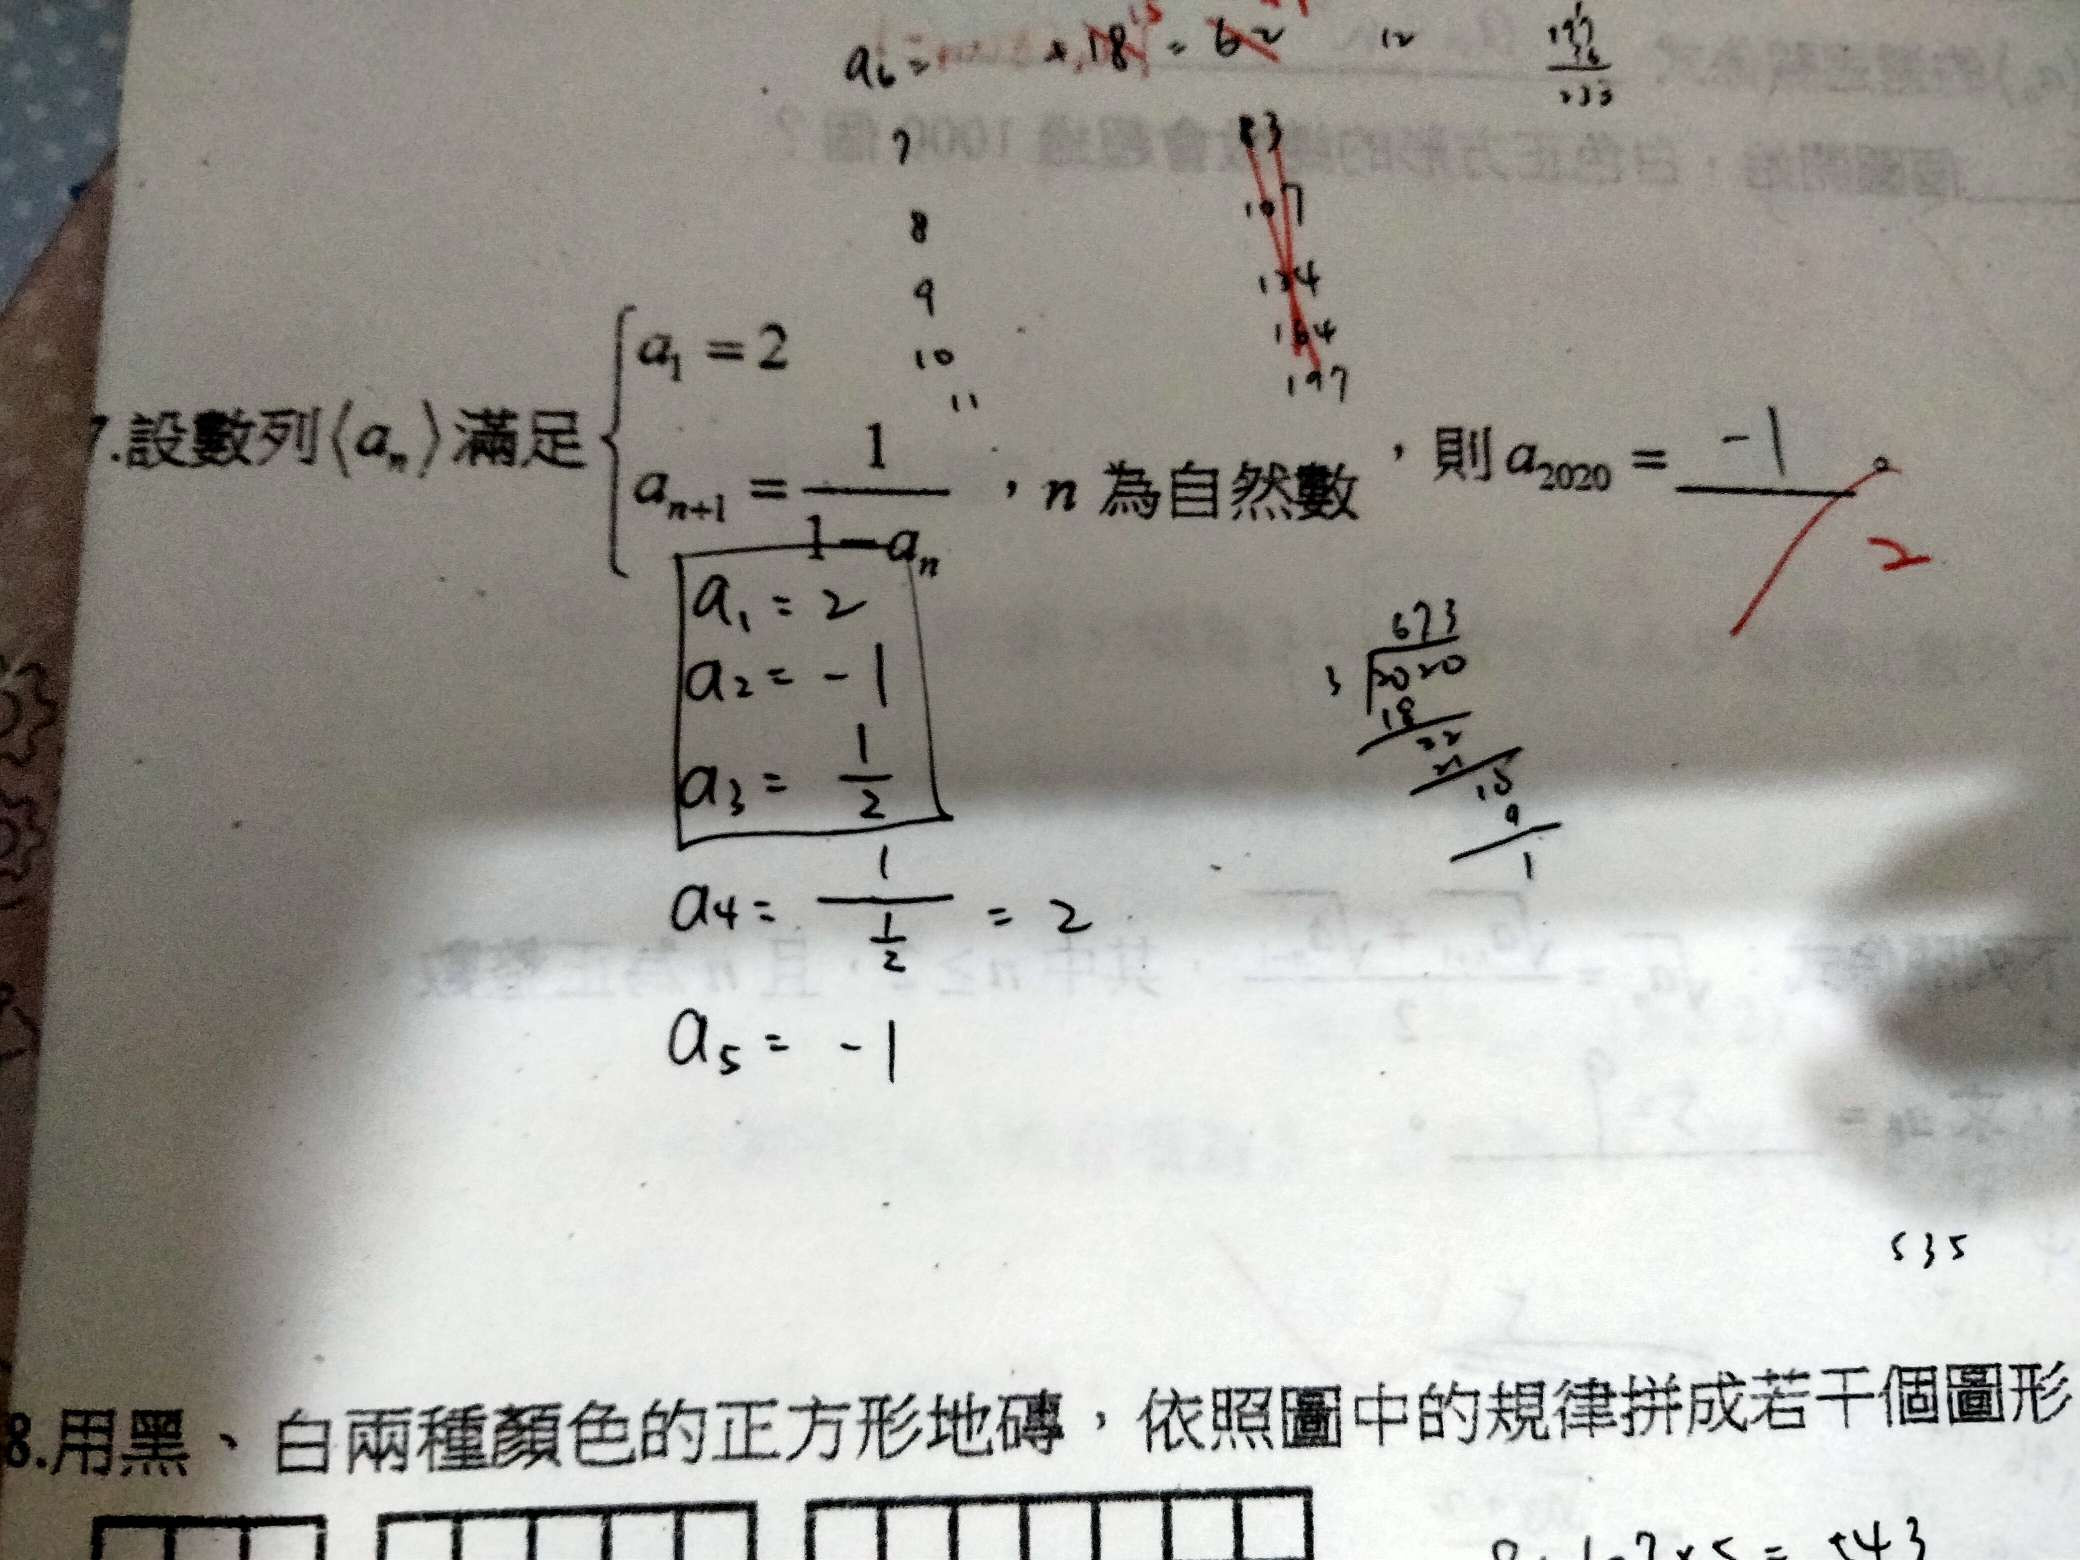 a₆ = + 18 15 = 62 12 197
36
233
7 83
8 107
9 134
10 164
11 197
7.設數列⟨aₙ⟩滿足 { a₁ = 2
aₙ₊₁ = 1/(1−aₙ) ，n 為自然數，則 a₂₀₂₀ = -1 。
2
a₁ = 2
a₂ = -1
a₃ = 1/2
a₄ = 1/(1/2) = 2
a₅ = -1
673
3 2020
18
22
21
10
9
1
535
8.用黑、白兩種顏色的正方形地磚，依照圖中的規律拼成若干個圖形
= 543